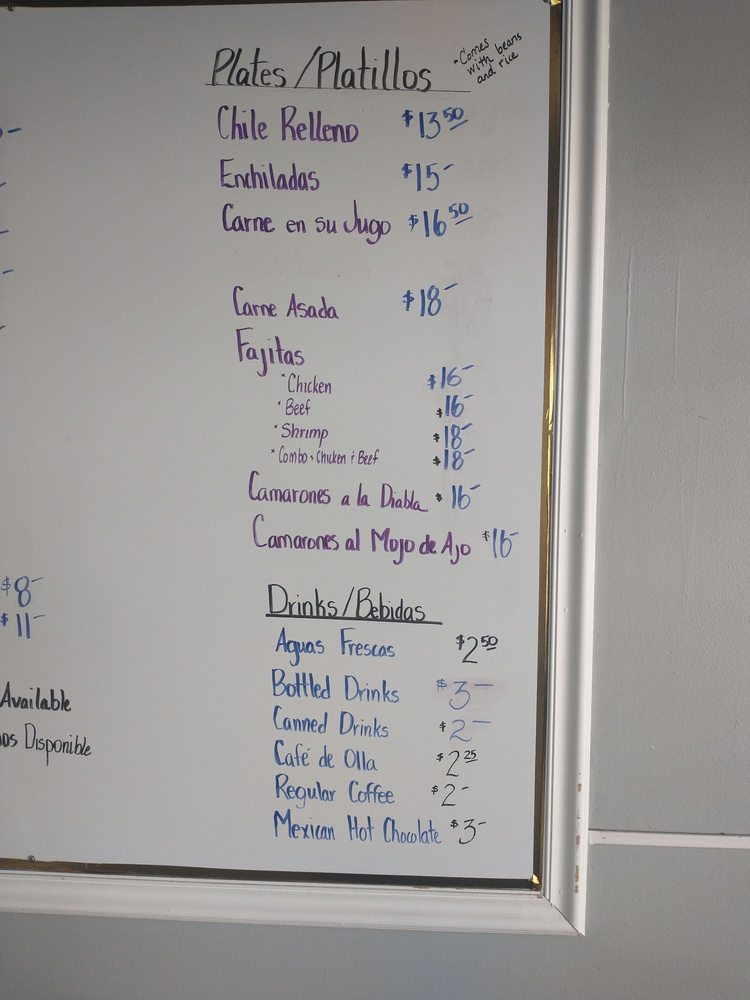 Plates/Platillos
*Comes with beans and rice
Chile Relleno $13.50
Enchiladas $15-
Carne en su Jugo $16.50
Carne Asada $18-
Fajitas
*Chicken $16-
*Beef $16-
*Shrimp $18-
*Combo, Chicken & Beef $18-
Camarones a la Diabla $16-
Camarones al Mojo de Ajo $16-
Drinks/Bebidas
Aguas Frescas $2.50
Bottled Drinks $3-
Canned Drinks $2-
Café de Olla $2.25
Regular Coffee $2-
Mexican Hot Chocolate $3-
$8-
$11-
Available
Disponible